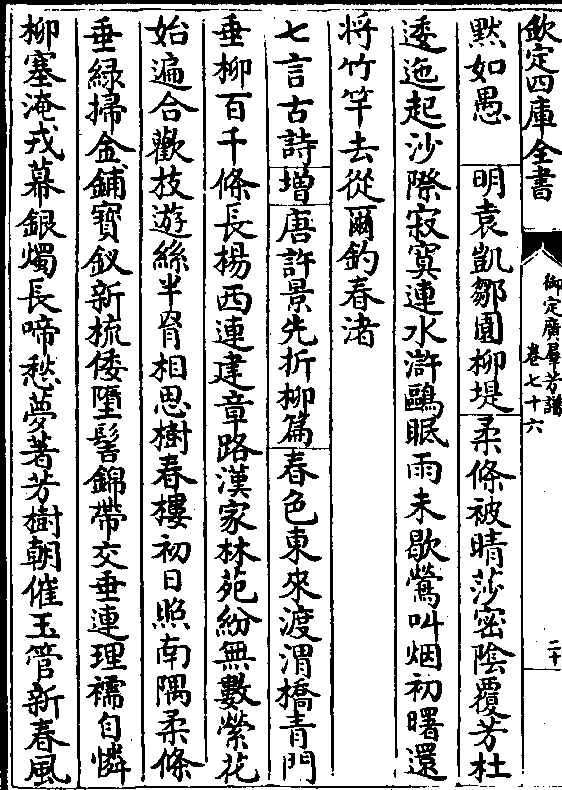 欽定四庫全書
御定廣羣芳譜
卷七十六
二十
默如愚 明袁凱鄒園柳堤 柔條被晴莎密陰覆芳杜
逶迤起沙際寂寞連水滸鷗眠雨未歇鶯叫烟初曙還
将竹竿去從爾釣春渚
七言古詩增唐許景先折柳篇 春色東來渡渭橋青門
垂柳百千條長楊西連建章路漢家林苑紛無數縈花
始遍合歡枝遊絲半罥相思樹春樓初日照南隅柔條
垂綠掃金鋪寶釵新梳倭墮髻錦帶交垂連理襦自憐
柳塞淹戎幕銀燭長啼愁夢著芳樹朝催玉管新春風